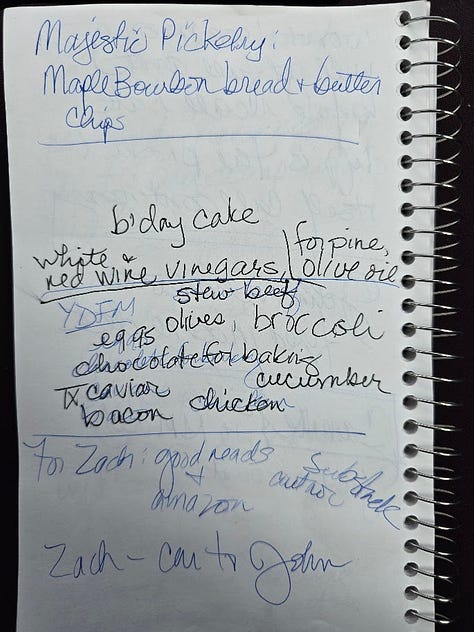 Majestic Pickelry:
Maple Bourbon bread + butter
chips
b'day cake
white +
red wine vinegars, for pine,
olive oil
stew beef
YDFM
eggs olives, broccoli
chocolate for baking
cucumber
TX caviar
bacon chicken
For Zach: good reads
+
amazon
Substack
author
Zach - car to John